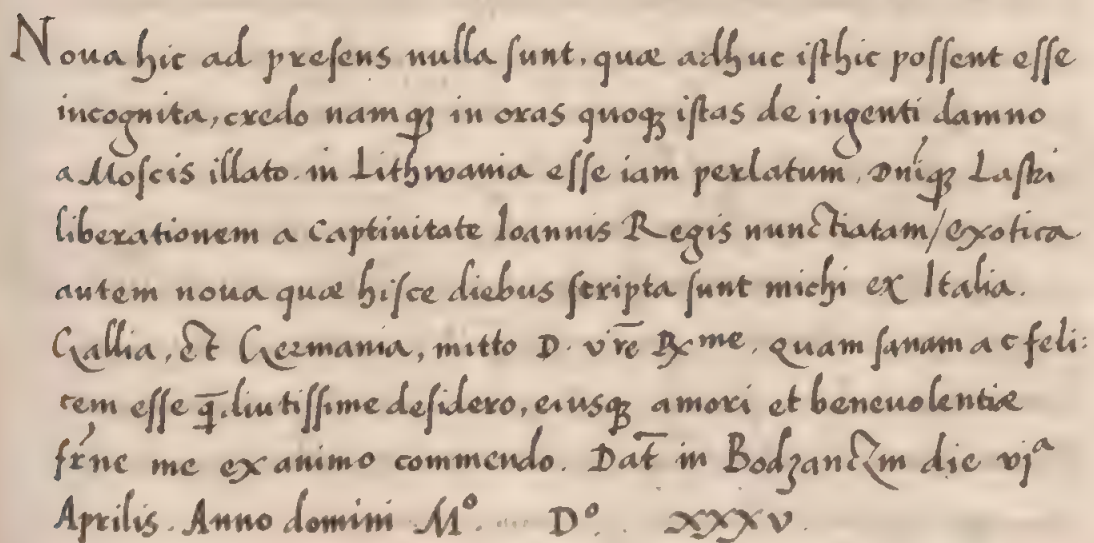 Noua hic ad presens nulla sunt, quæ adhuc isthic possent esse
incognita, credo namqꝫ in oras quoqꝫ istas de ingenti damno
a Moscis illato in Lithwania esse iam perlatum, Dniqꝫ Laski
liberationem a Captiuitate Ioannis Regis nunctiatam/exotica
autem noua quæ hisce diebus scripta sunt michi ex Italia.
Gallia, et Germania, mitto D. vrē Rx̄me. quam sanam ac feli:
cem esse q̄.diutissime desidero, eiusqꝫ amori et beneuolentiæ
frn̄e me ex animo commendo. Dat̄ in Bodzanczin die vjᵃ
Aprilis. Anno domini Mº. Dº. xxxv.